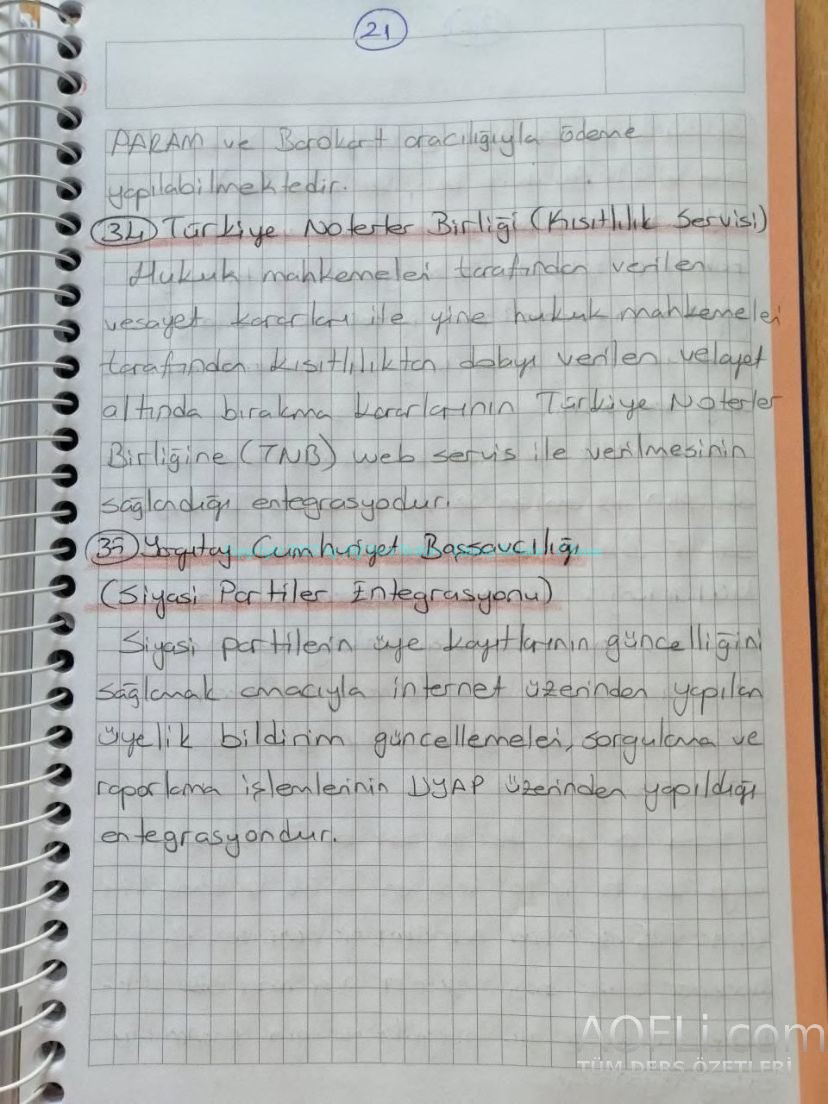 21
PARAM ve Barokart aracılığıyla ödeme
yapılabilmektedir.
34 Türkiye Noterler Birliği (Kısıtlılık Servisi)
Hukuk mahkemeleri tarafından verilen
vesayet kararları ile yine hukuk mahkemeleri
tarafından kısıtlılıktan dolayı verilen velayet
altında bırakma kararlarının Türkiye Noterler
Birliğine (TNB) web servis ile verilmesinin
sağlandığı entegrasyodur.
35 Yargıtay Cumhuriyet Başsavcılığı
(Siyasi Partiler Entegrasyonu)
Siyasi partilerin üye kayıtlarının güncelliğini
sağlamak amacıyla internet üzerinden yapılan
üyelik bildirim güncellemeleri, sorgulama ve
raporlama işlemlerinin UYAP üzerinden yapıldığı
entegrasyondur.
AOFLi.com
TÜM DERS ÖZETLERİ